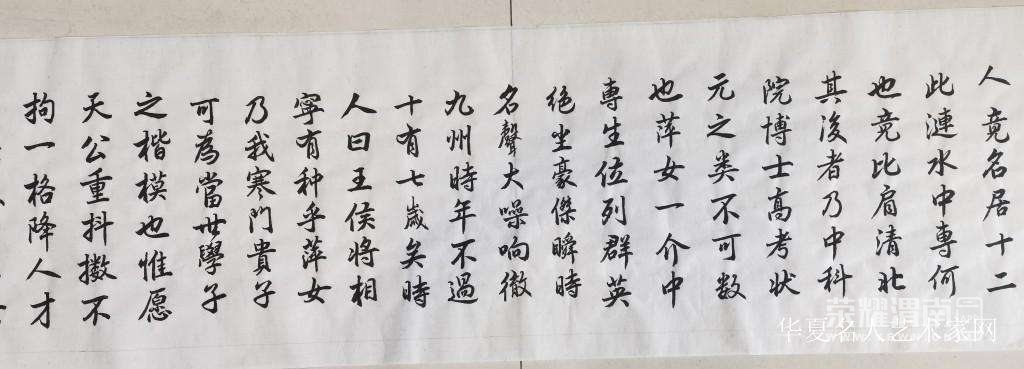 人竟名居十二
此漣水中專何
也竟比肩清北
其後者乃中科
院博士高考状
元之类不可数
也萍女一介中
專生位列群英
绝尘豪傑瞬時
名聲大噪响徹
九州時年不過
十有七歲矣時
人曰王侯将相
寧有种乎萍女
乃我寒门貴子
可為當世學子
之楷模也惟愿
天公重抖擞不
拘一格降人才
荣耀渭南网
华夏名人艺术家网